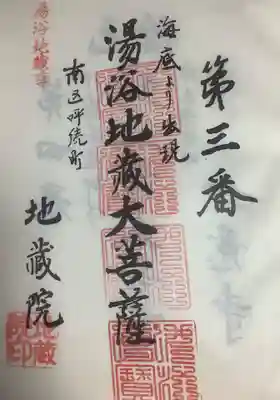 第三番
海底より出現
湯浴地蔵大菩薩
南区呼続町
地蔵院
地蔵院印